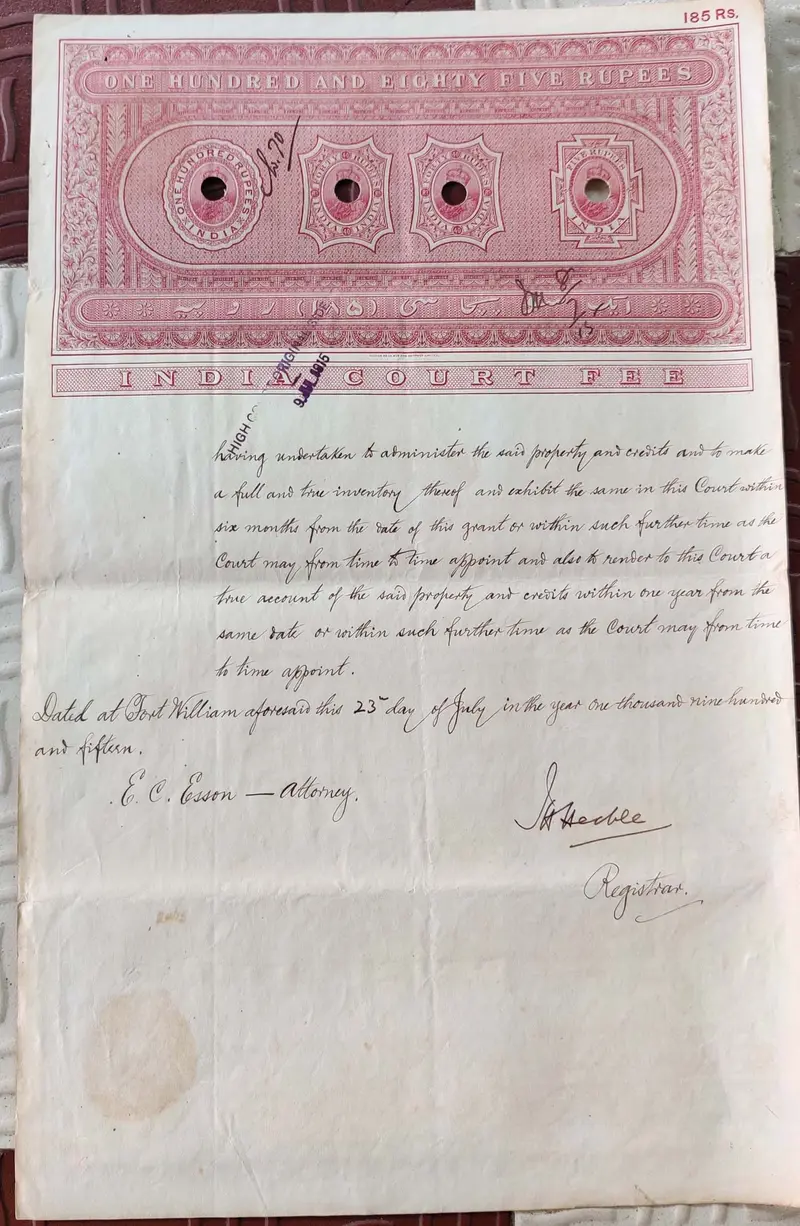 185 Rs.
ONE HUNDRED AND EIGHTY FIVE RUPEES
ONE HUNDRED RUPEES INDIA
FORTY RUPEES INDIA
FORTY RUPEES INDIA
FIVE RUPEES INDIA
ایک سو پچاسی (۱۸۵) روپیہ
INDIA COURT FEE
HIGH ORIGINAL SIDE
1915
having undertaken to administer the said property and credits and to make
a full and true inventory thereof and exhibit the same in this Court within
six months from the date of this grant or within such further time as the
Court may from time to time appoint and also to render to this Court a
true account of the said property and credits within one year from the
same date or within such further time as the Court may from time
to time appoint.
Dated at Fort William aforesaid this 23 day of July in the year one thousand nine hundred
and fifteen.
E. C. Esson — Attorney.
Registrar.